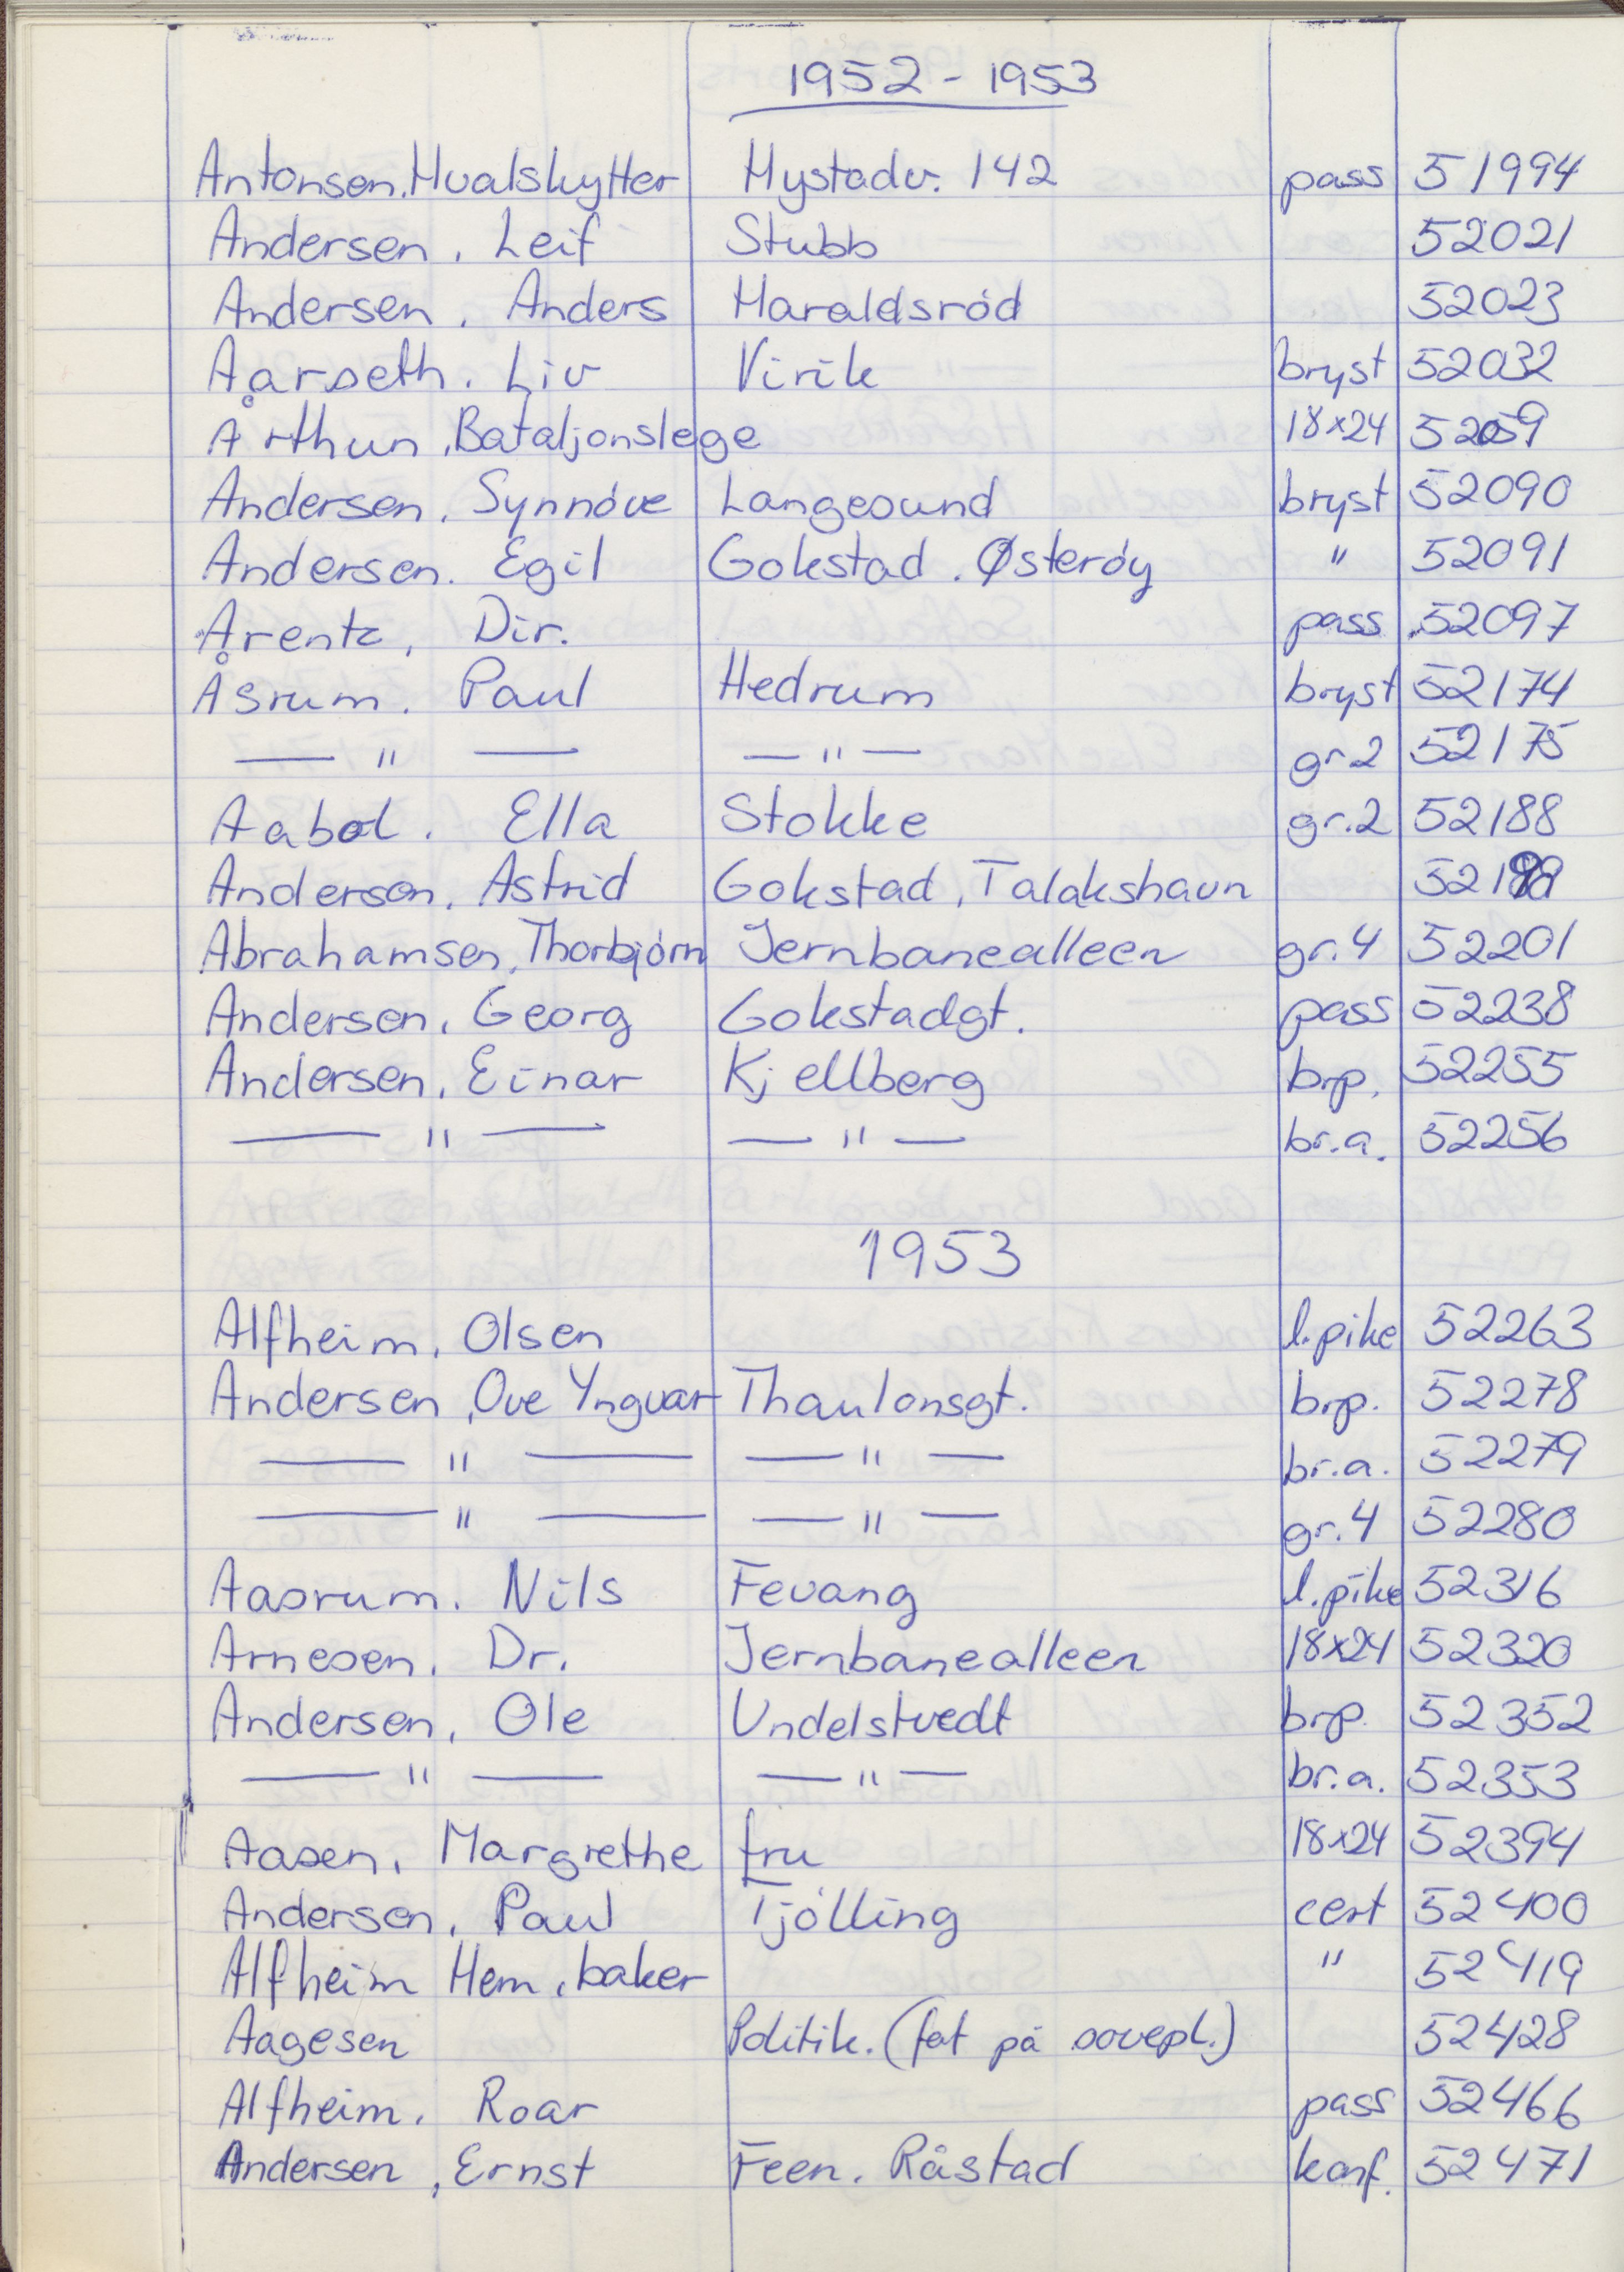 1952 - 1953
Antonsen, Hvalskytter Hystadv. 142 pass 51994
Andersen, Leif Stubb 52021
Andersen, Anders Haraldsród 52023
Aarseth, Liv Virik bryst 52032
Århun, Bataljonslege 18x24 52059
Andersen, Synnóve Langesund bryst 52090
Andersen, Egil Gokstad, Østeróy " 52091
Arentz, Dir. pass 52097
Åsrum, Paul Hedrum bryst 52174
— " — — " — gr 2 52175
Aabol, Ella Stokke gr. 2 52188
Andersen, Astrid Gokstad, Talakshavn 52199
Abrahamsen, Thorbjórn Jernbanealleen gr. 4 52201
Andersen, Georg Gokstadgt. pass 52238
Andersen, Einar Kjellberg brp. 52255
— " — — " — br.a. 52256
1953
Alfheim, Olsen l.pike 52263
Andersen, Ove Yngvar Thaulonsgt. brp. 52278
— " — — " — br.a. 52279
— " — — " — gr. 4 52280
Aasrum, Nils Fevang l.pike 52316
Arnesen, Dr. Jernbanealleen 18x24 52320
Andersen, Ole Undelstvedt brp. 52352
— " — — " — br.a. 52353
Aasen, Margrethe fru 18x24 52394
Andersen, Paul Tjólling cert 52400
Alfheim Hem, baker " 52419
Aagesen Politik. (fat på sovepl.) 52428
Alfheim, Roar pass 52466
Andersen, Ernst Feen, Råstad konf. 52471